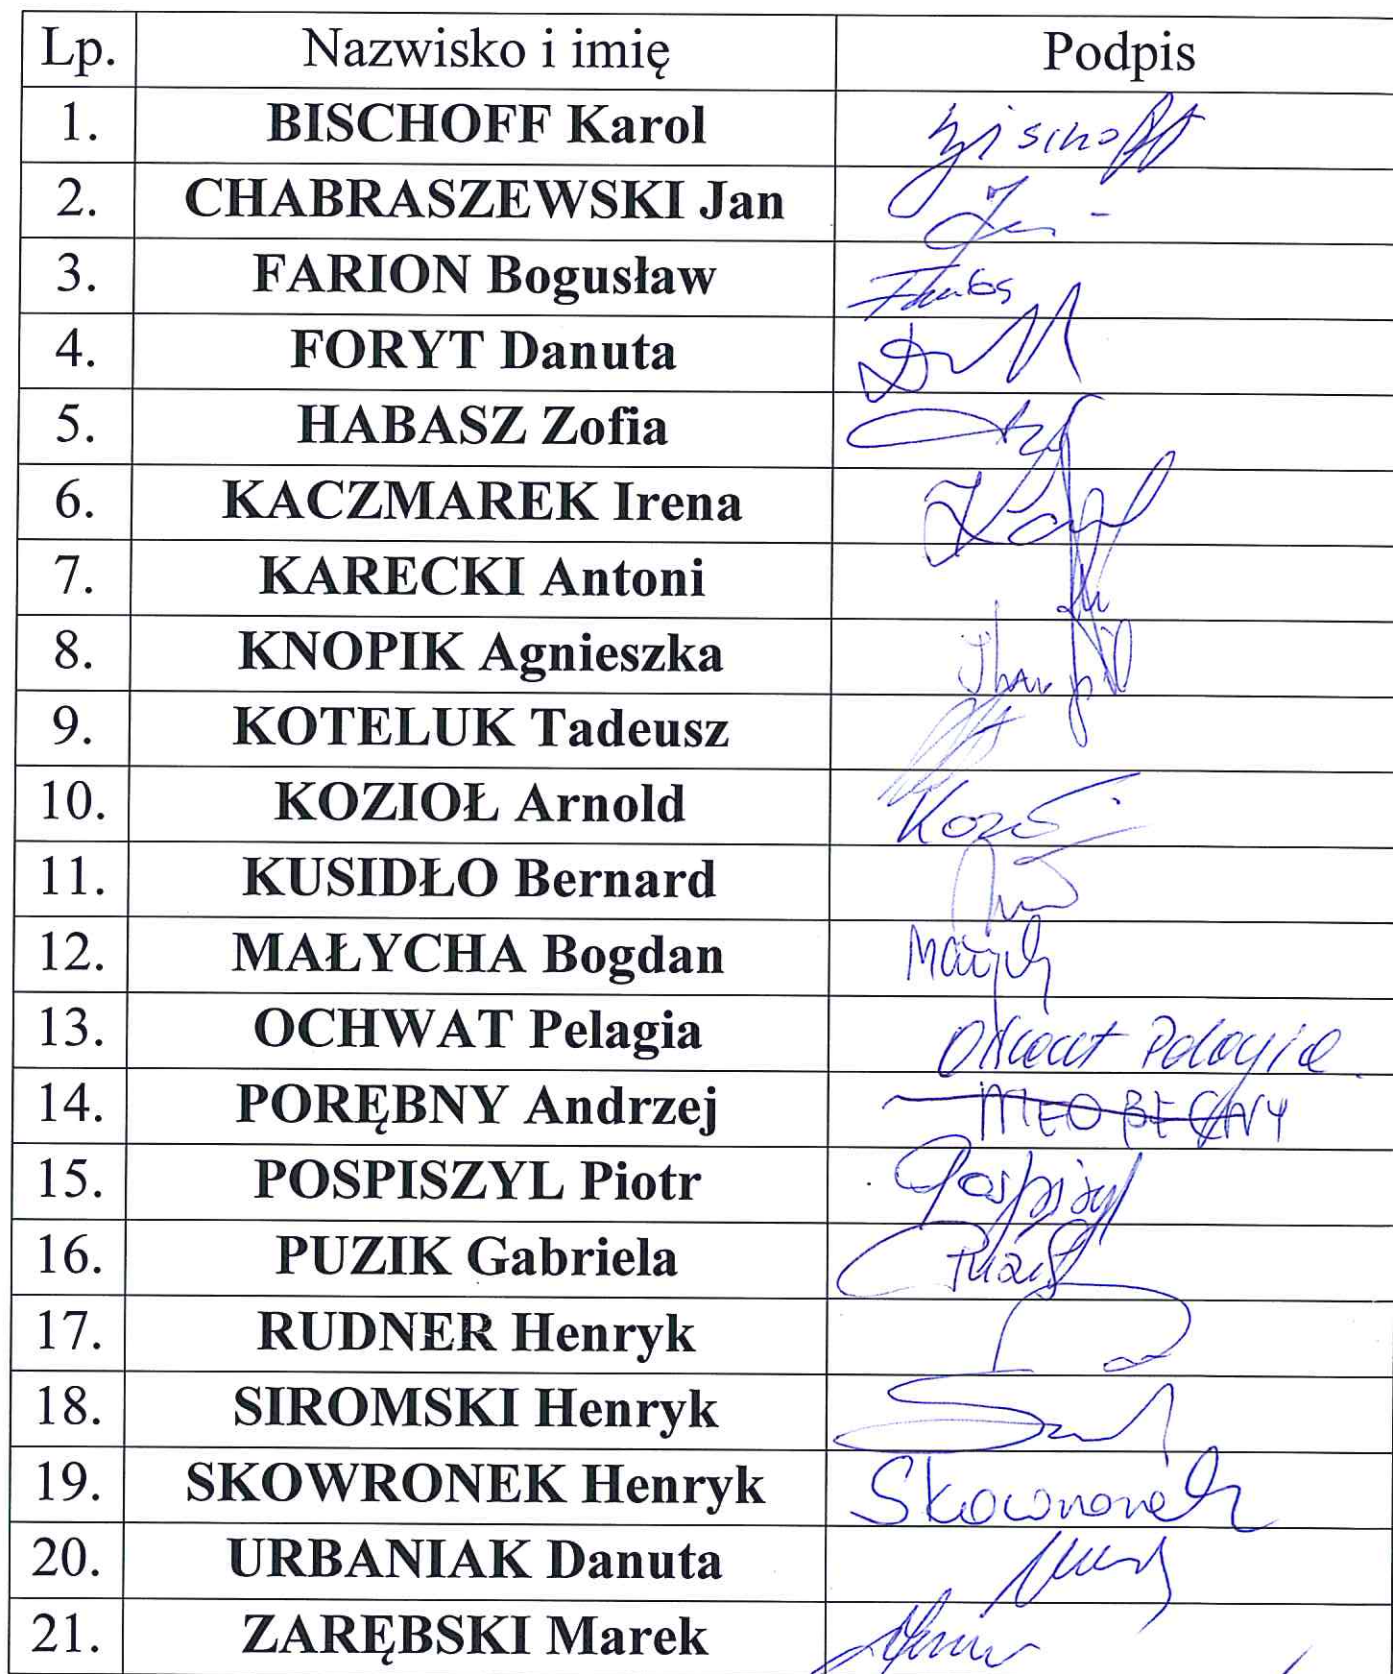 Lp. Nazwisko i imię Podpis
1. BISCHOFF Karol Bischoff
2. CHABRASZEWSKI Jan
3. FARION Bogusław
4. FORYT Danuta
5. HABASZ Zofia
6. KACZMAREK Irena
7. KARECKI Antoni
8. KNOPIK Agnieszka
9. KOTELUK Tadeusz
10. KOZIOŁ Arnold
11. KUSIDŁO Bernard
12. MAŁYCHA Bogdan
13. OCHWAT Pelagia Ochwat Pelagia
14. PORĘBNY Andrzej NIEOBECNY
15. POSPISZYL Piotr Pospiszyl
16. PUZIK Gabriela Puzik
17. RUDNER Henryk
18. SIROMSKI Henryk
19. SKOWRONEK Henryk Skowronek
20. URBANIAK Danuta
21. ZARĘBSKI Marek